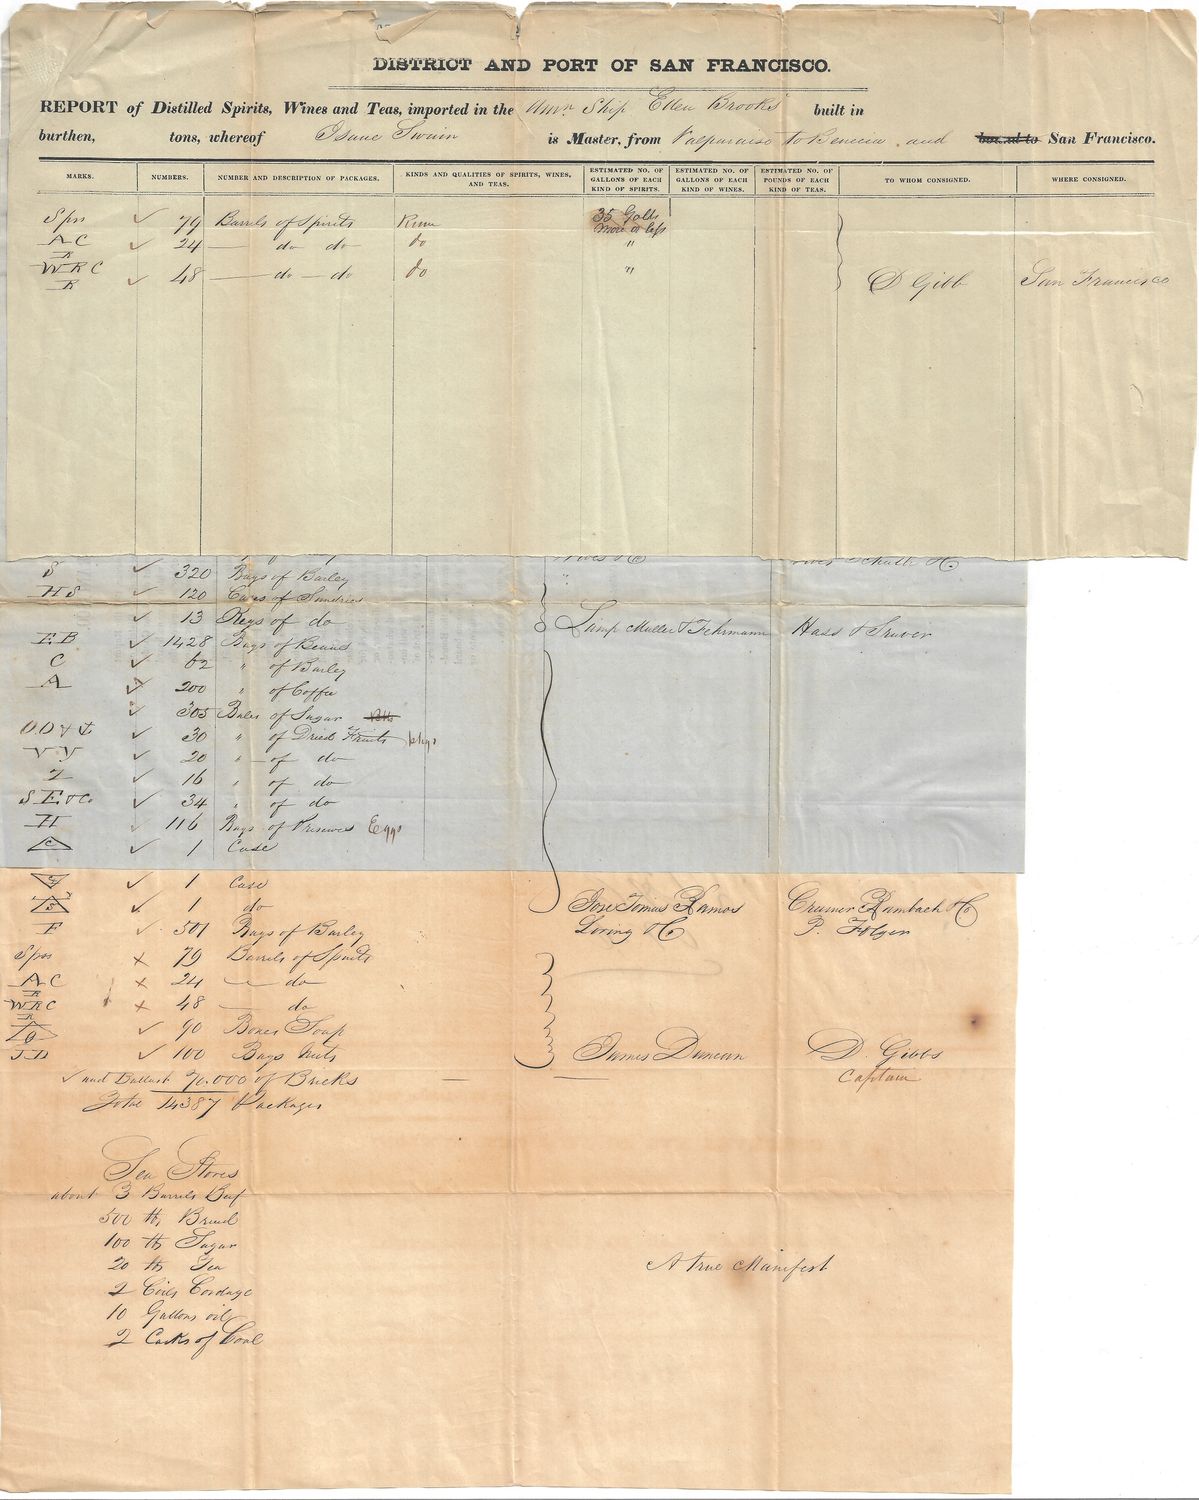 DISTRICT AND PORT OF SAN FRANCISCO.
REPORT of Distilled Spirits, Wines and Teas, imported in the Amn Ship Ellen Brooks built in
burthen, tons, whereof Isaac Swain is Master, from Valparaiso to Benecia and bound to San Francisco.
MARKS. NUMBERS. NUMBER AND DESCRIPTION OF PACKAGES. KINDS AND QUALITIES OF SPIRITS, WINES, AND TEAS. ESTIMATED NO. OF GALLONS OF EACH KIND OF SPIRITS. ESTIMATED NO. OF GALLONS OF EACH KIND OF WINES. ESTIMATED NO. OF POUNDS OF EACH KIND OF TEAS. TO WHOM CONSIGNED. WHERE CONSIGNED.
79 Barrels of Spirits Rum 35 Galls more or less
AC R 24 — do do do "
WRC R 48 — do — do do " D Gibb San Francisco
S 320 Bags of Barley
HS 120 Cases of Sundries
13 Kegs of do Lamp Muller & Fehrmann Hass & Struver
EB 1428 Bags of Beans
C 62 " of Barley
A 200 " of Coffee
305 Bales of Sugar
30 " of Dried Fruits pkgs
20 " of do
16 " of do
S E & Co 34 " of do
H 116 Bags of Eggs
C 1 Case
1 Case
1 do Jose Tomas Ramos Cramer Rambach & C
F 501 Bags of Barley Loring & C P. Folger
79 Barrels of Spirits
AC R 24 — do
WRC R 48 — do
90 Boxes Soap
JD 100 Bags Nuts James Duncan D. Gibbs
and Ballast 70.000 of Bricks — — Captain
Total 14387 Packages
Sea Stores
about 3 Barrels Beef
500 lb Bread
100 lb Sugar
20 lb Tea
A true Manifest
2 Coils Cordage
10 Gallons oil
2 Casks of Coal